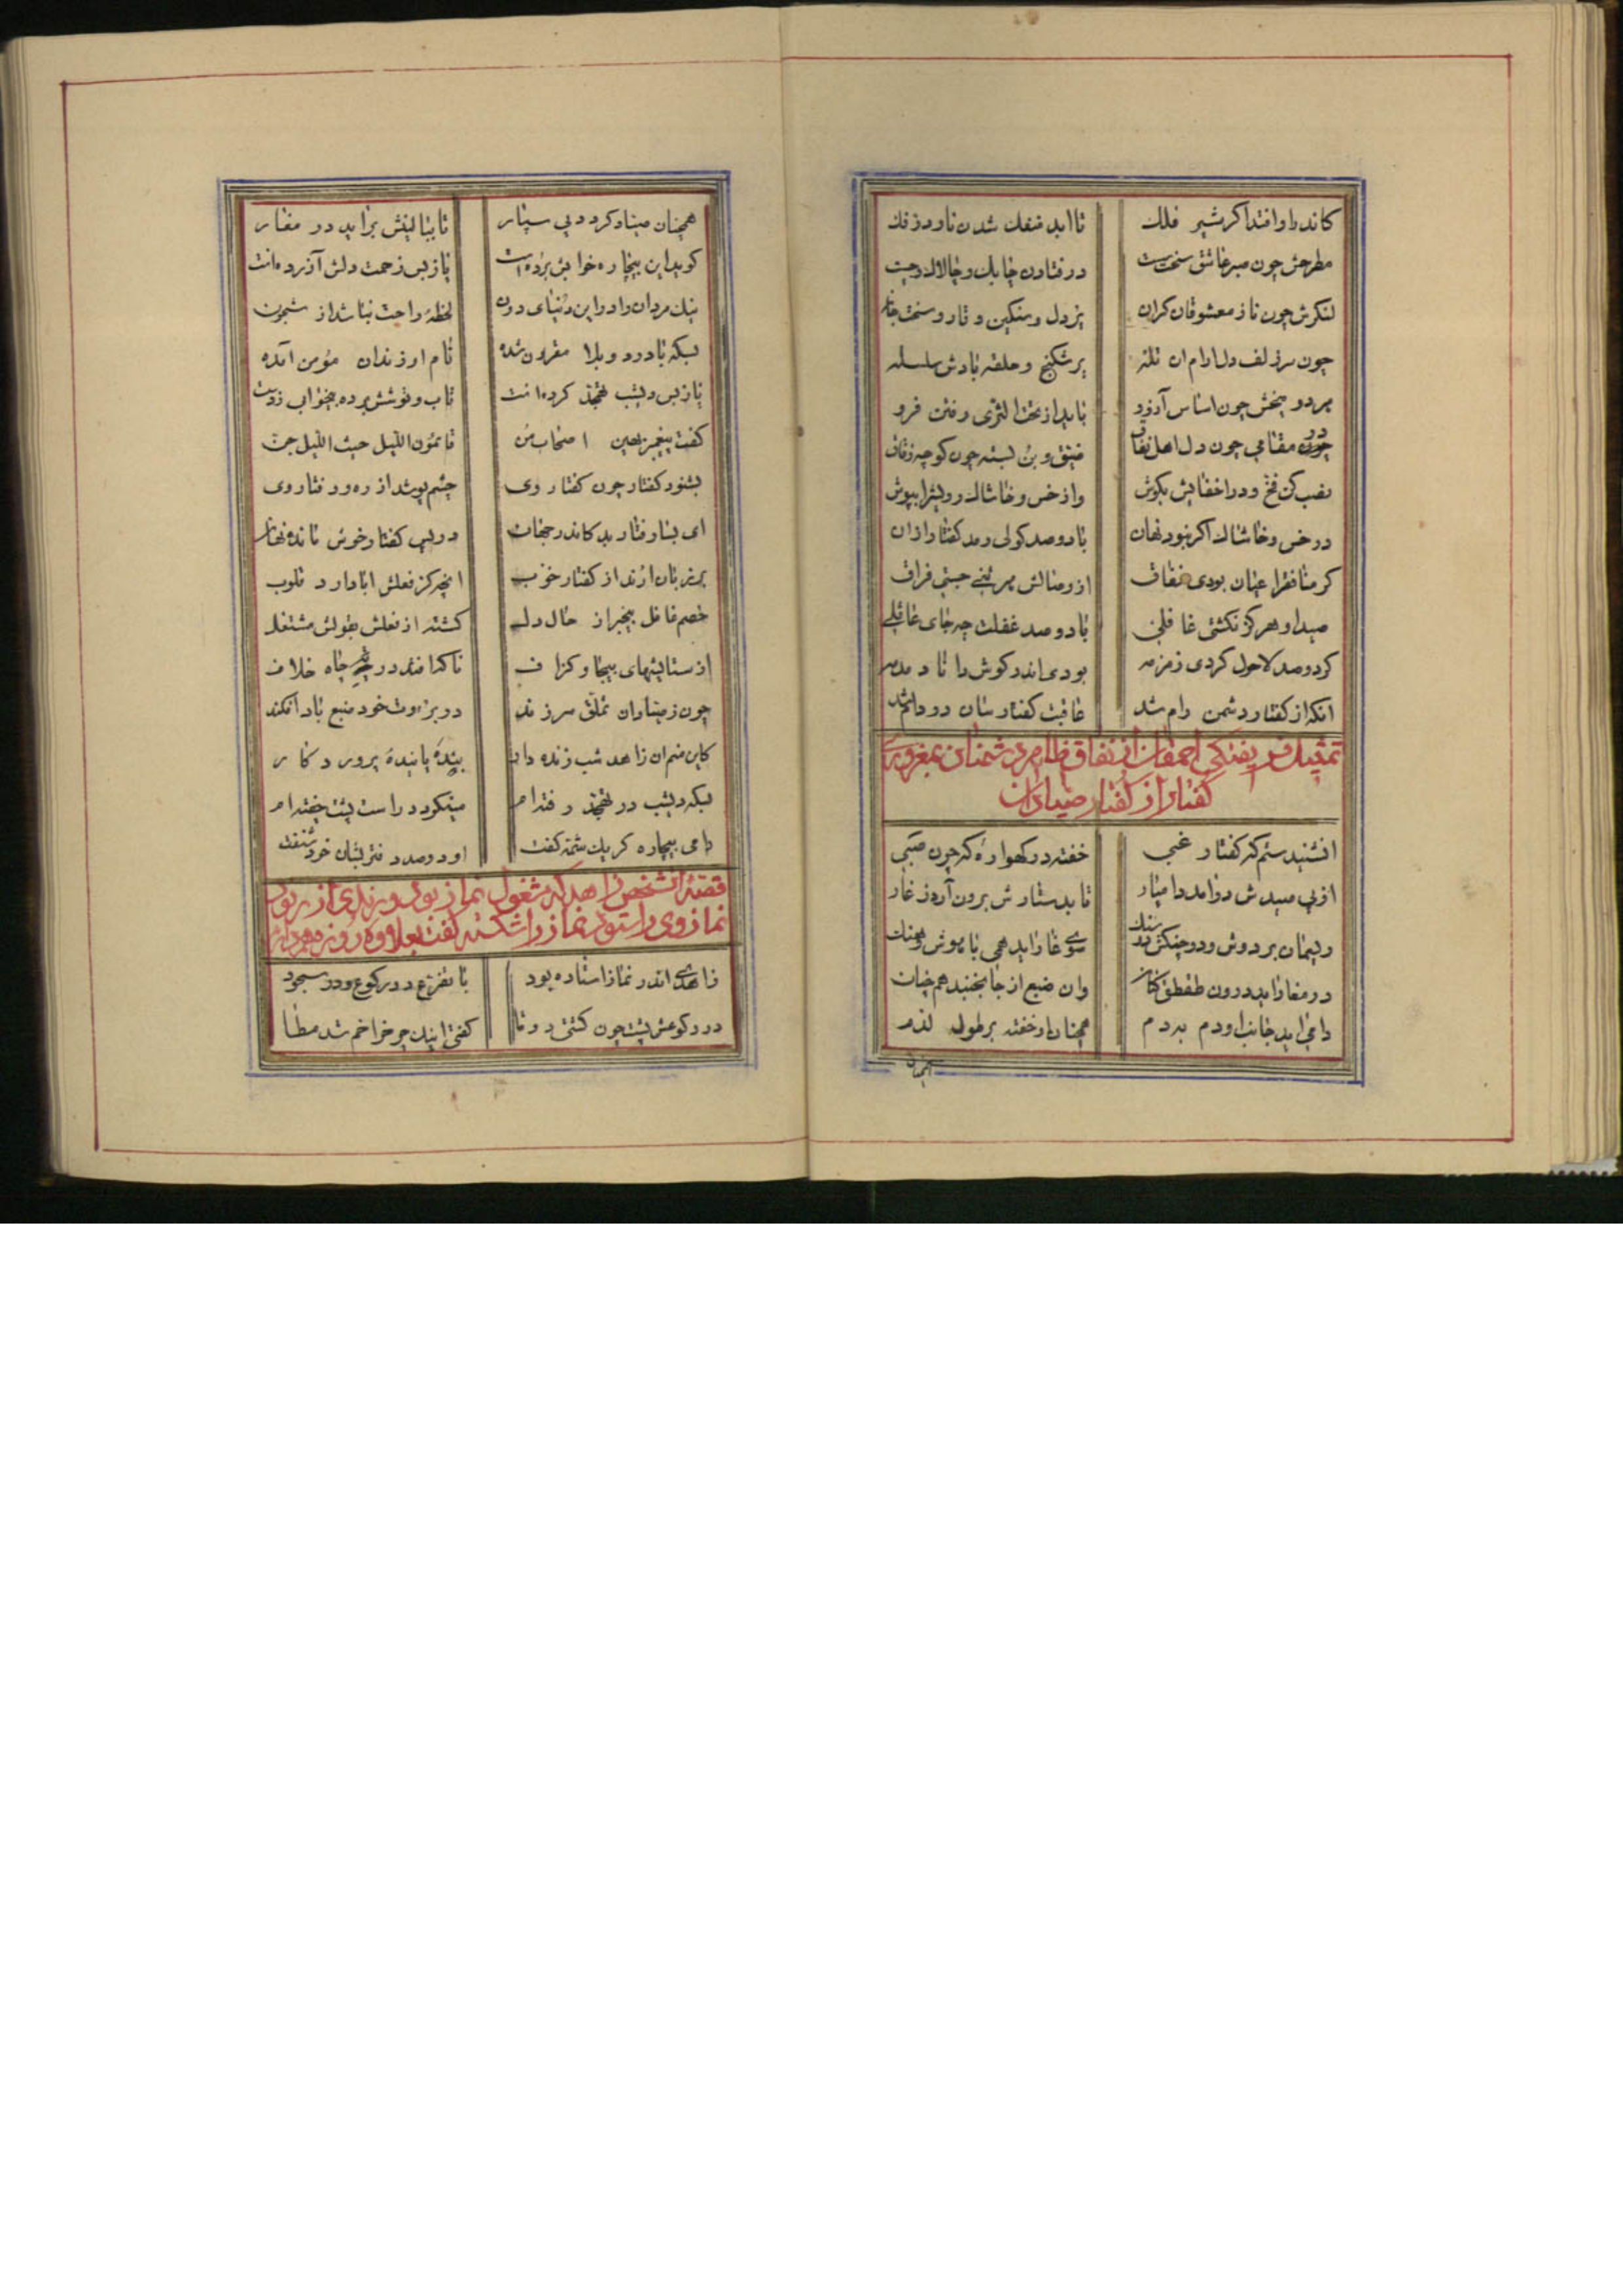 کاندرا وافتدا کر شیر فلك تا ابد منفك شدن ناورد زفك
مطرحش چون صبر عاشق سخت سست در فتادن چابك و چالاك و چست
لنکرش چون ناز معشوقان کران پر دل و سنکین و تار و سخت جان
چون سر زلف دلارام ان تله پر شکنج و حلقه بادش سلسله
چون اساس آرزو باید از تحت الثری رفتن فرو
مقامی چون دل اهل نفاق ضیق و بن بسته چون کوچه زقاق
نصب کن فخ و در اخفایش بکوش واز خس و خاشاك رویشرا بپوش
در خس و خاشاك اکر نبود نهان با دو صد کولی رمد کفتار ازان
کر منافقرا عیان بودی نفاق از وصالش هر تنی جستی فراق
صید او هرکز نکشتی غافلی با دو صد غفلت چه جای عاقلی
کرد و صد لاحول کردی زمزمه بودی اندر کوش دانا دمدمه
انکه از کفتار دشمن رام شد عاقبت کفتارسان در دام شد
تمثیل فریفتکی احمقان از نفاق ظاهری دشمنان بمغروری
کفتار از کفتار صیادان
انشنیدستم که کفتار غبی خفته در کهواره که چون صبی
از پی صیدش در آمد دامیار تا بدستارش برون آرد ز غار
ریسمان بر دوش و در چنکش سنك سوی غار اید همی با هوش و هنك
در مغار اید درون طقطق کنان وان ضبع از جا نجنبد همچنان
دامی اید جانب او دم بدم همچنان او خفته بر طول لذم
همچنان
همچنان صیاد کردد پی سپار تا ببالینش براید در مغار
کوید این بیچاره خوابش برده است یا ز بس زحمت دلش آزرده است
نیك مردان را در این دنیای دون لحظهٔ راحت نباشد از شجون
بسکه با درد و بلا مقرون شده نام او زندان مؤمن آمده
یا ز بس دیشب تهجد کرده است تاب و توشش برده بیخوابی ز دست
کفت پیغمبر بعین اصحاب من نائمون اللیل حیث اللیل جن
بشنود کفتار چون کفتار وی چشم پوشد از ره و رفتار وی
ای بسا رفتار بد کاندر جهان در پس کفتار خوش مانده نهان
بر زبان ارند از کفتار خوب انچه کز فعلش ابا دارد قلوب
خصم غافل بیخبر از حال دل کشته از فعلش بقولش مشتغل
از ستایشهای بیجا و کزاف تا که افتد در چه چاه خلاف
چون ز صیادان تملق سر زند در بروت خود ضبع باد افکند
کاین منم ان زاهد شب زنده دار بندهٔ پایندهٔ پروردکار
بسکه دیشب در تهجد رفته ام مینکردد راست پشت خفته ام
دامی بیچاره کر یك شمه کفت او دو صد دفتر بشان خود شنفت
قصهٔ انشخص زاهد که مشغول نماز بود و رندی از
نماز وی را ستود نماز را شکسته کفت بعلاوه روزه هم دارم
زاهدی اندر نماز استاده بود با تضرع در رکوع و در سجود
در رکوعش پشت چون کشتی دوتا کفتی اینك چرخرا خم شد مطا